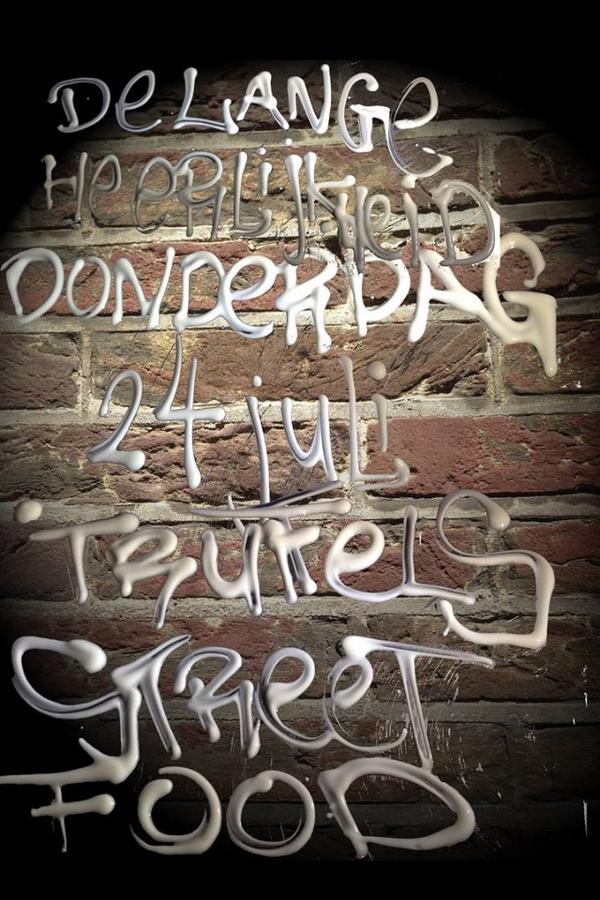 De LANGe
HeeRLijKHeiD
DONDeRDAG
24 juli
TRuffeLS
STReeT
FOOD